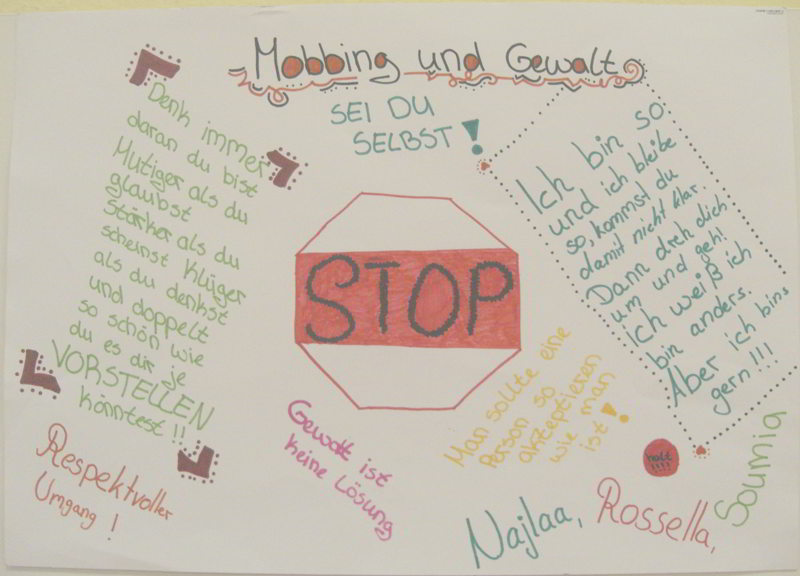 Mobbing und Gewalt
SEI DU
SELBST!
Denk immer
daran du bist
Mutiger als du
glaubst
stärker als du
scheinst Klüger
als du denkst
und doppelt
so schön wie
du es dir je
VORSTELLEN
könntest!!
Ich bin so
und ich bleibe
so, kommst du
damit nicht klar.
Dann dreh dich
um und geh!
ich weiß ich
bin anders.
Aber ich bins
gern!!!
STOP
Man sollte eine
Person so
akzeptieren
wie man
ist!
Gewalt ist
keine Lösung
Respektvoller
Umgang!
halt
!!!!
Najlaa, Rossella, Soumia